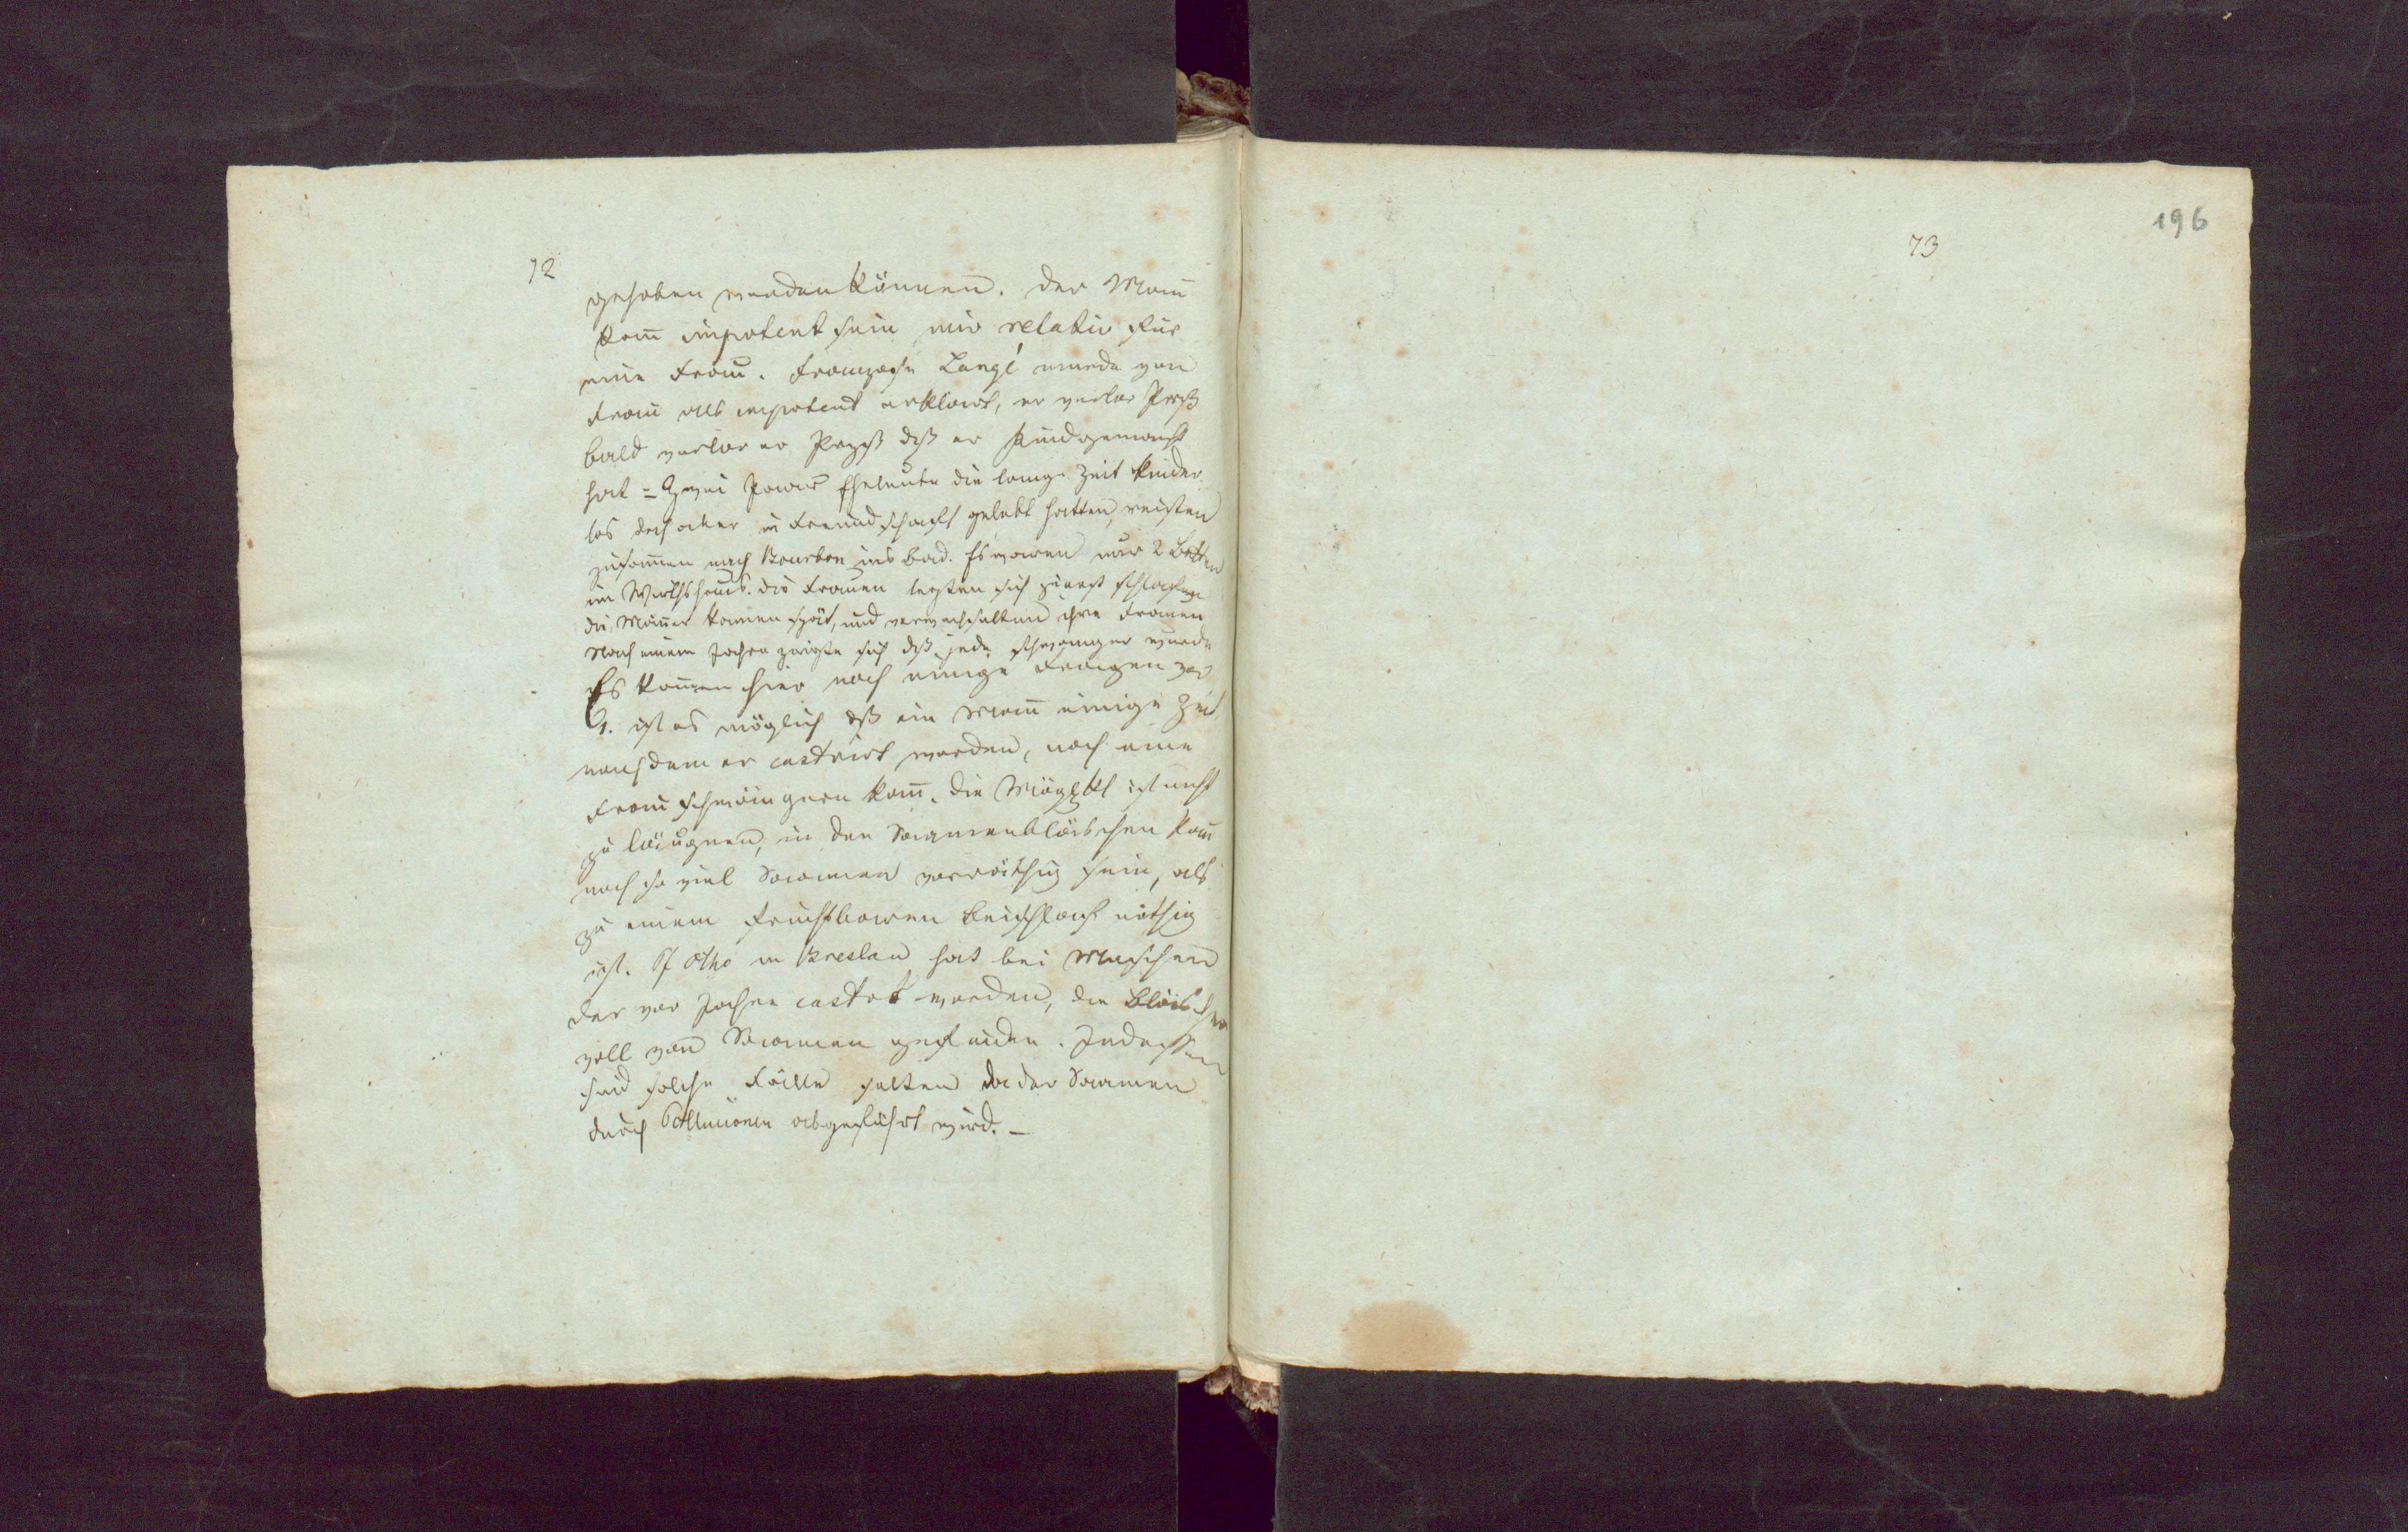 72
gehoben werden können. Der Mann
kann impotent sein nur relativ für
eine Frau. Franzose Langé wurde von
Frau als impotent erklärt, er verlor Prozß
bald verlor er Prozß dß er Kind gemacht
hat = Zwei Paar Eheleute die lange Zeit kinder
los doch aber in Freundschaft gelebt hatten, reisten
zusammen nach Bourbon ins Bad. Es waren nur 2 Betten
im Wirthshaus. Die Frauen legten sich zuerst schlafen
die Männer kamen spät, und verwechselten ihre Frauen
Nach einem Jahre zeigte sich dß jede schwanger wurde
Es kommen hier noch einige Fragen vor
ist es möglich dß ein Mann einige Zeit
nachdem er castrirt worden, noch eine
Frau schwängern kann. Die Möglkt ist nicht
zu läugnen, in den Saamenbläschen kann
noch so viel Saamen vorräthig sein, als
zu einem fruchtbaren Beischlaf nöthig
ist. Otho in Breslau hat bei Menschen
der vor Jahre castrt worden, die Bläschen
voll von Saamen gefunden. Indessen
sind solche Fälle selten da der Saamen
durch Pollutionen abgeführt wird. –
73
196